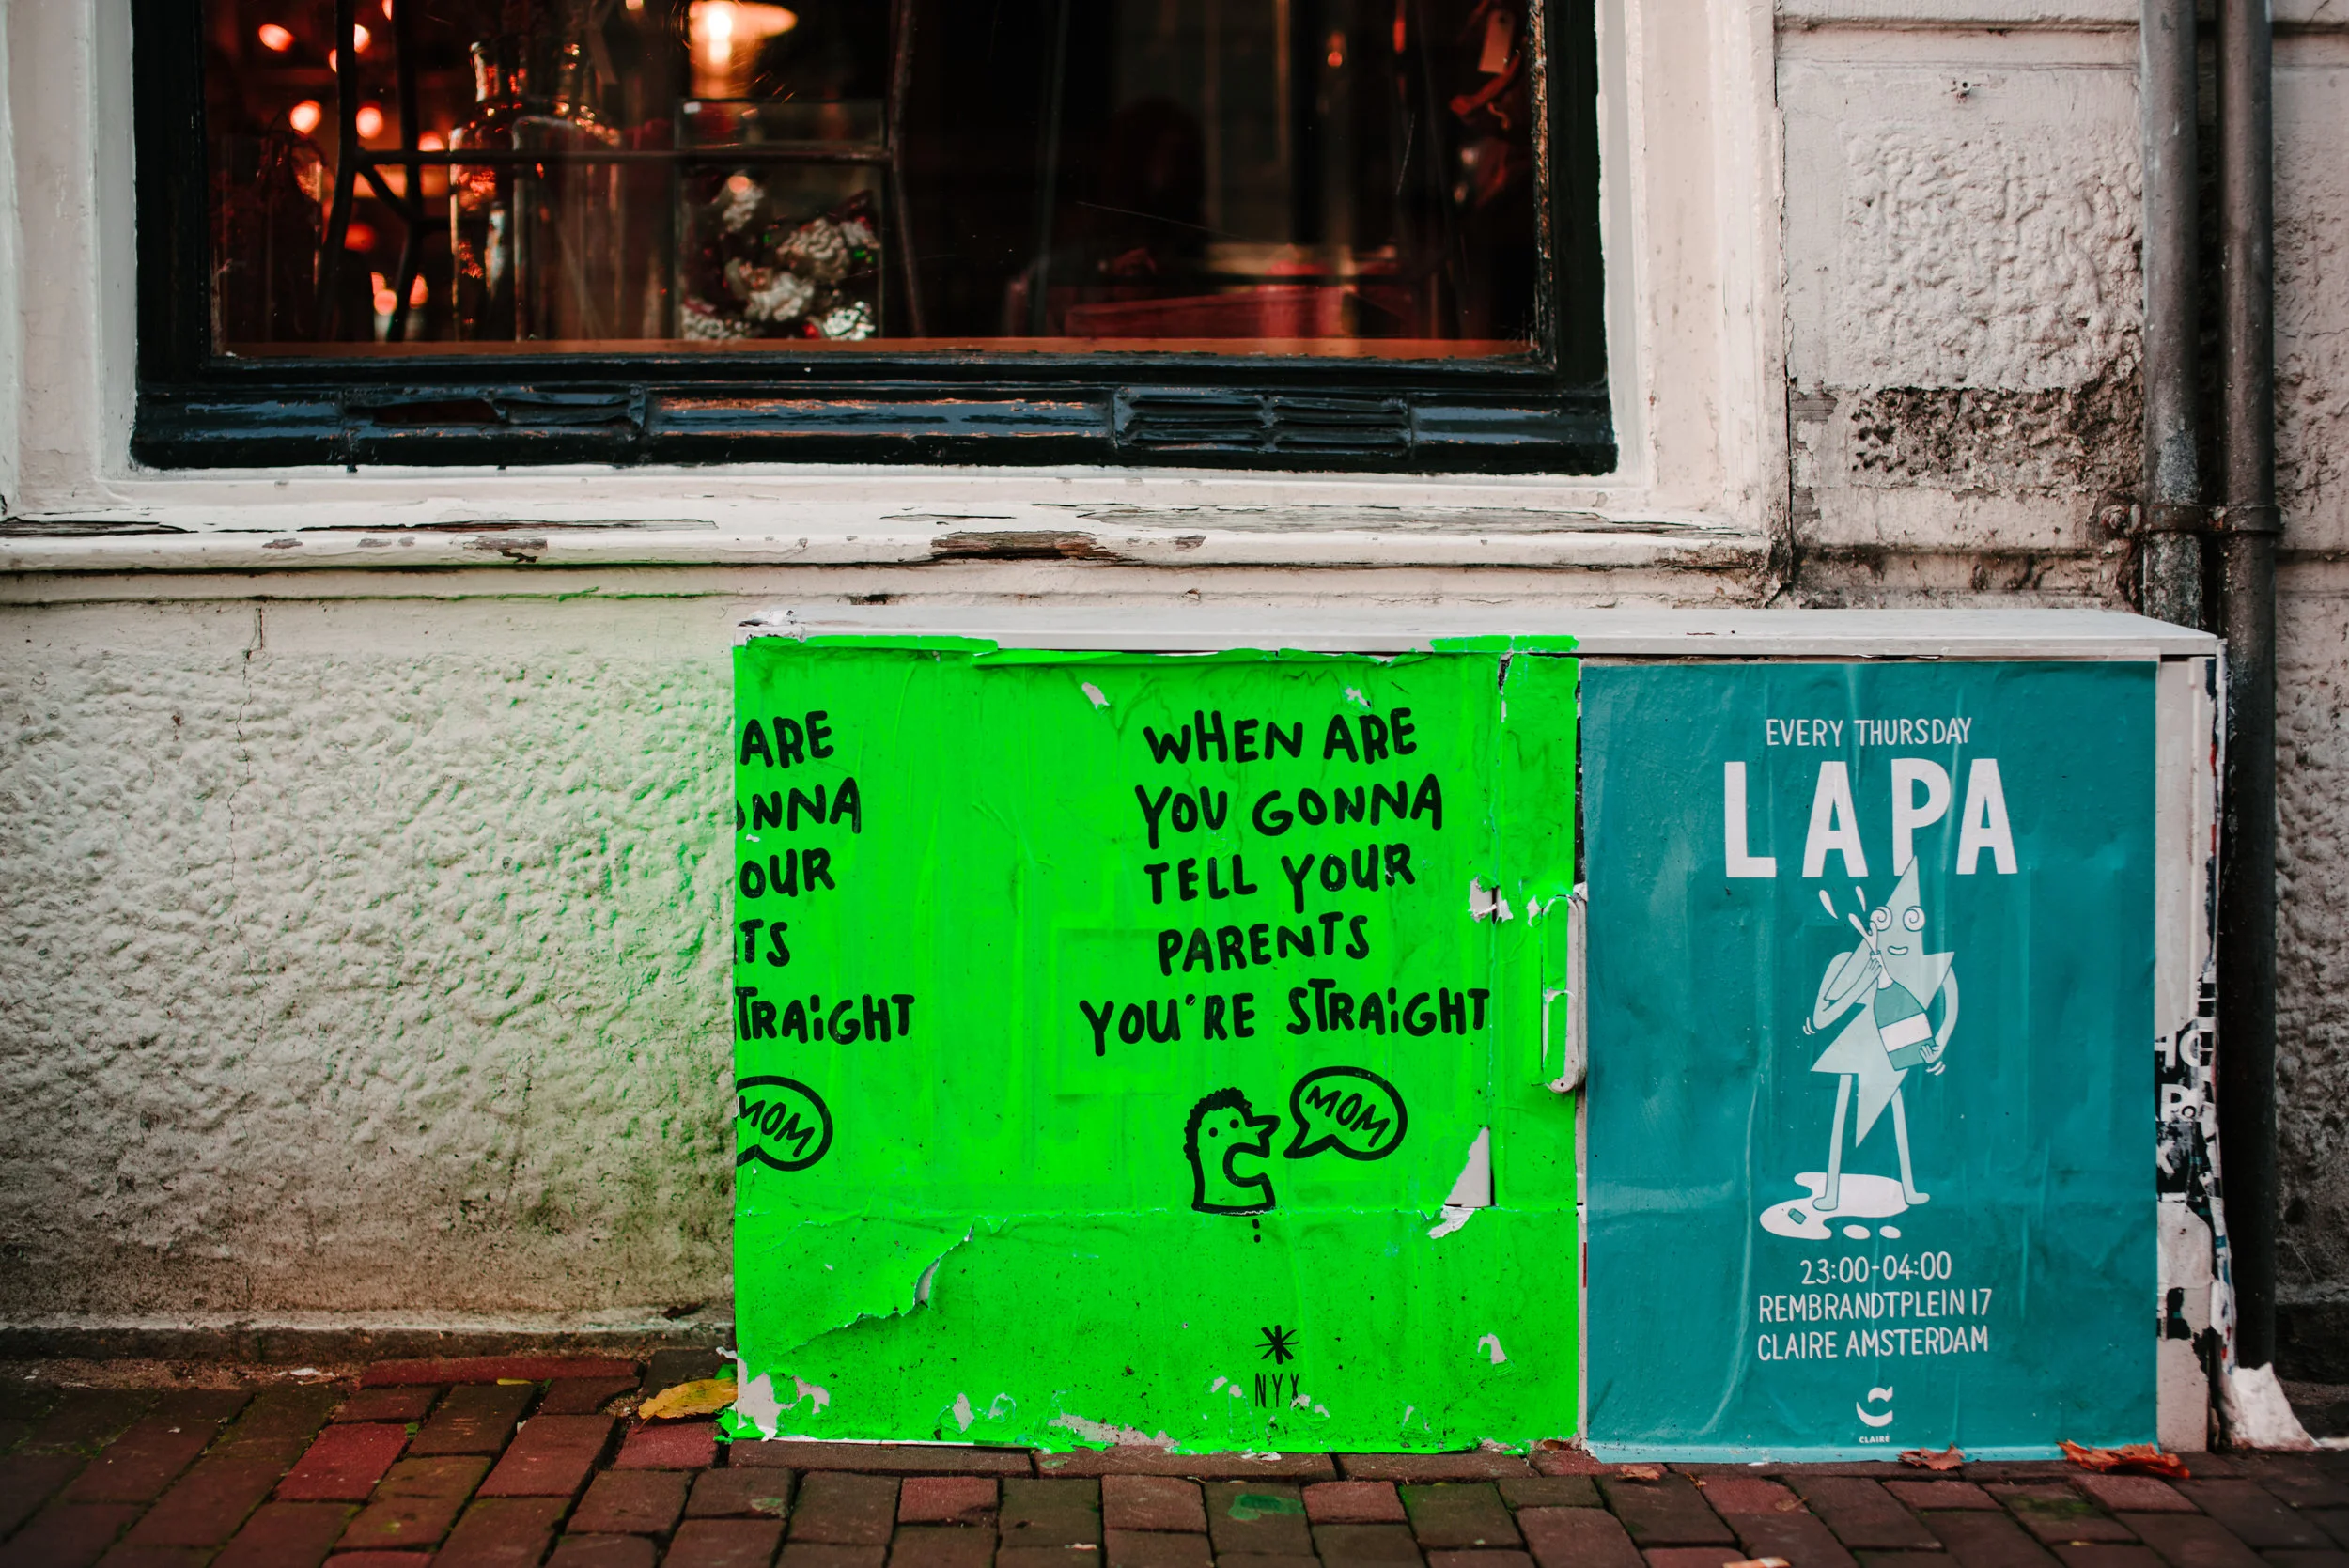 ARE
NNA
OUR
TS
TRAiGHT
MOM
WHEN ARE
YOU GONNA
TELL YOUR
PARENTS
YOU'RE STRAiGHT
MOM
NYX
EVERY THURSDAY
LAPA
23:00-04:00
REMBRANDTPLEIN 17
CLAIRE AMSTERDAM
CLAIRE